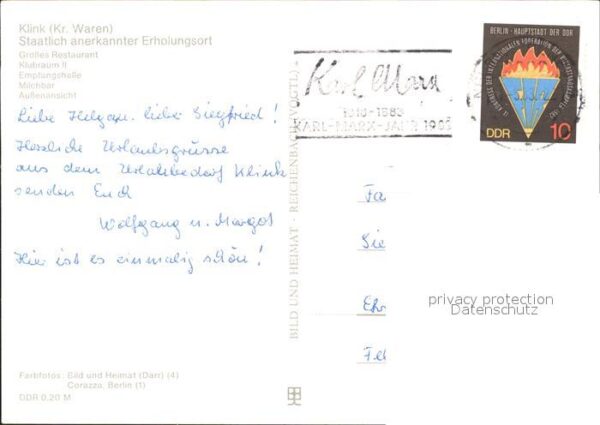 Klink (Kr. Waren)
Staatlich anerkannter Erholungsort
Großes Restaurant
Klubraum II
Empfangshalle
Milchbar
Außenansicht
Liebe Helga u. lieber Siegfried!
Herzliche Urlaubsgrüsse
aus dem Urlauberdorf Klink
senden Euch
Wolfgang u. Margot
Hier ist es einmalig schön!
Farbfotos: Bild und Heimat (Darr) (4)
Corazza, Berlin (1)
DDR 0,20 M
BILD UND HEIMAT · REICHENBACH (VOGTL)
Karl Marx
1818-1883
KARL-MARX-JAHR 1983
BERLIN · HAUPTSTADT DER DDR
DDR
10
Fa
Sie
Ehr
Fel
privacy protection
Datenschutz